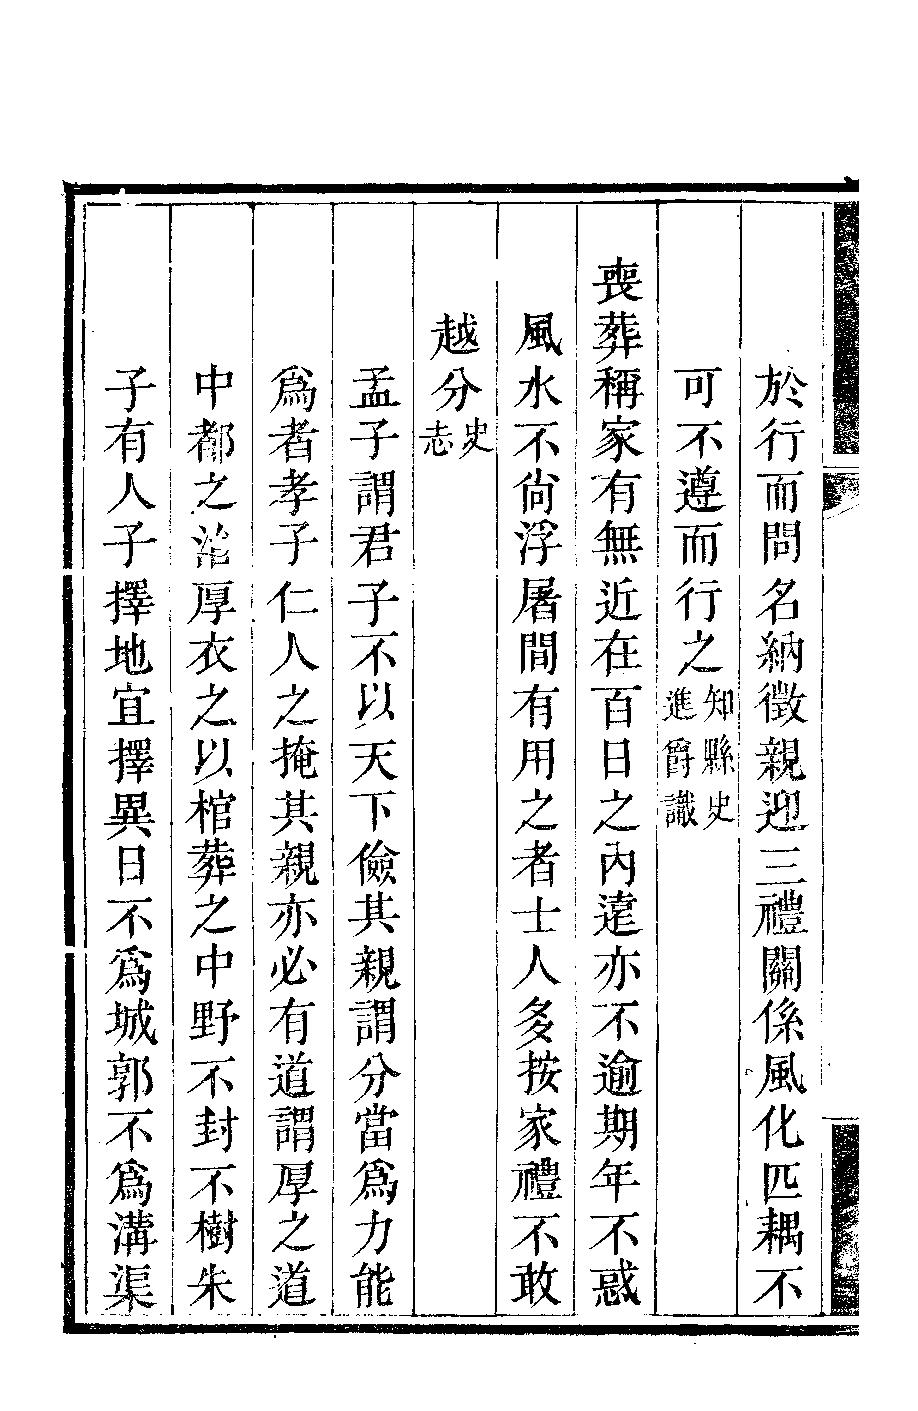 於行而問名納徵親迎三禮關係風化匹耦不
可不遵而行之知縣史進爵識
喪葬稱家有無近在百日之內遠亦不逾期年不惑
風水不尙浮屠間有用之者士人多按家禮不敢
越分史志
孟子謂君子不以天下儉其親謂分當爲力能
爲者孝子仁人之掩其親亦必有道謂厚之道
中都之治厚衣之以棺葬之中野不封不樹朱
子有人子擇地宜擇異日不爲城郭不爲溝渠